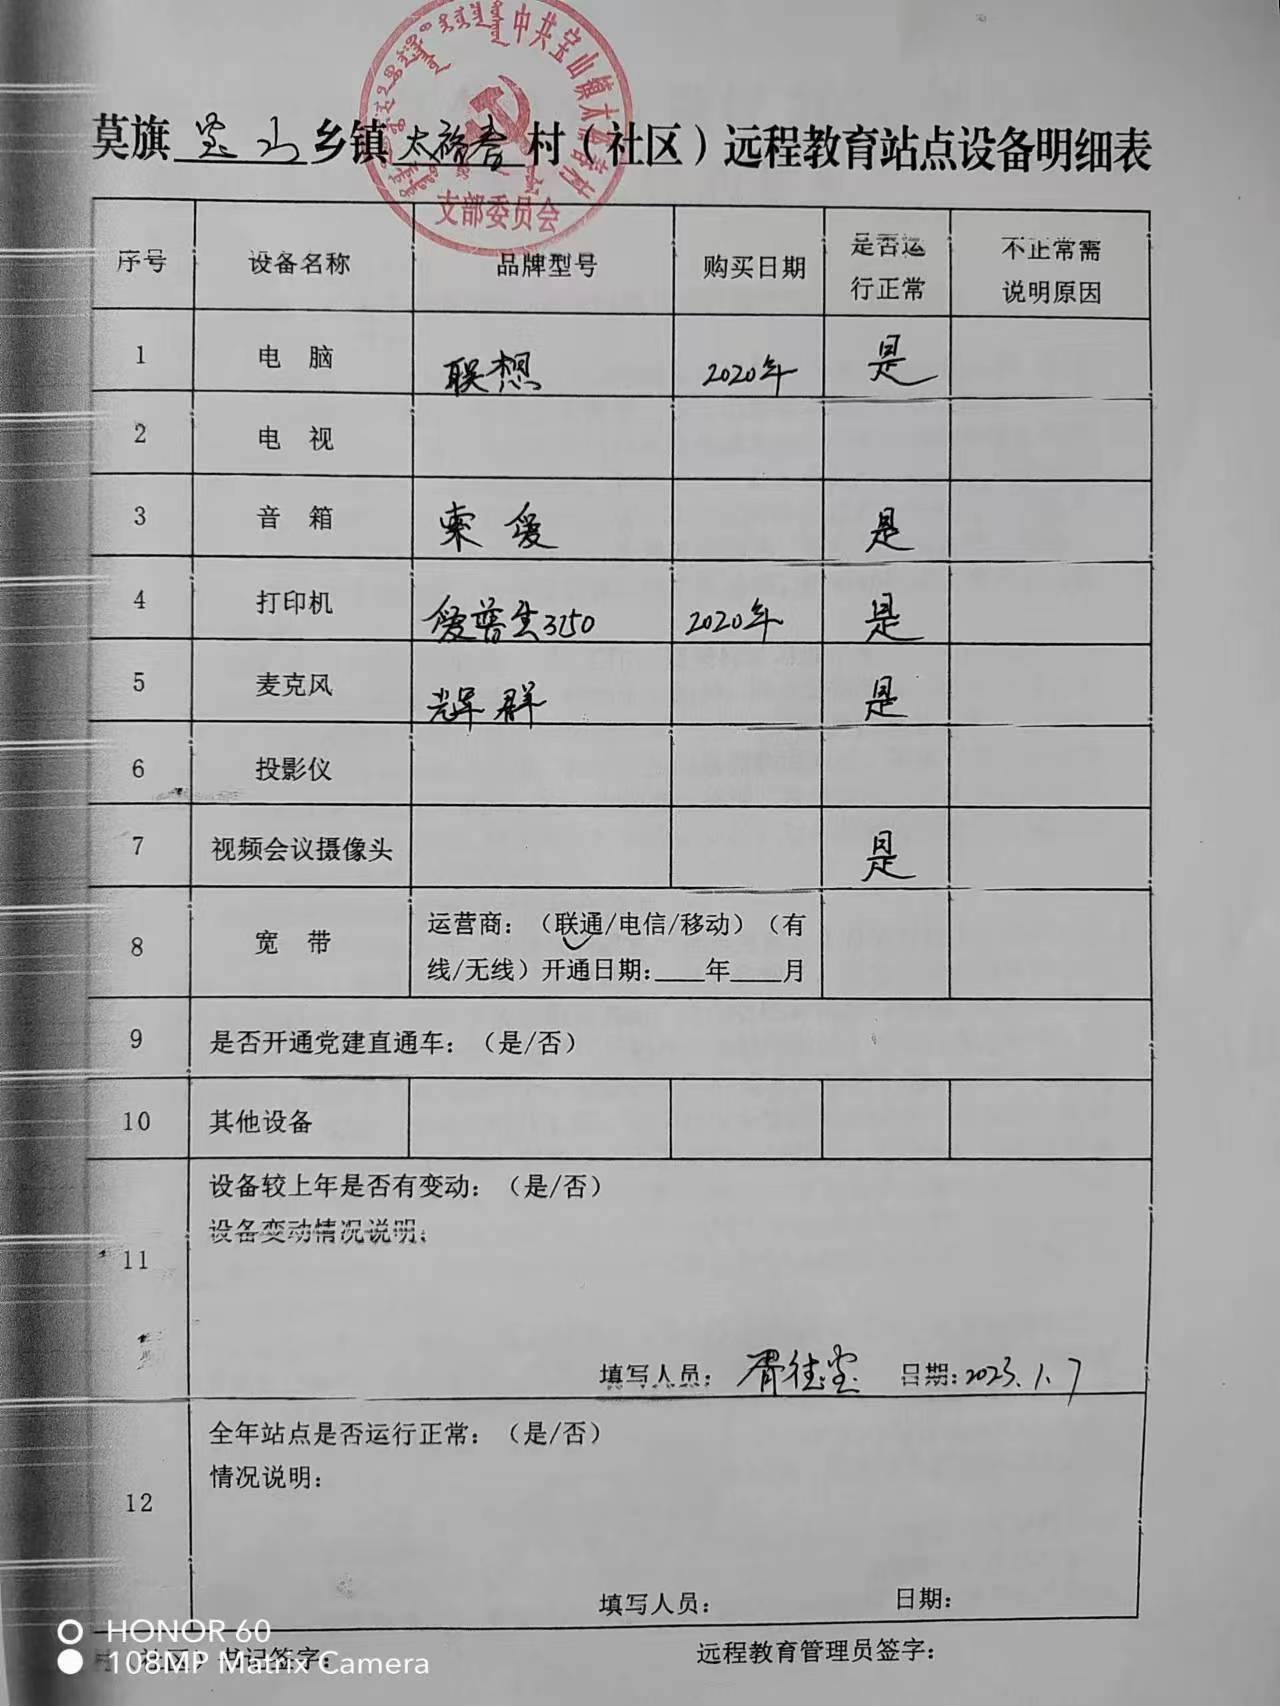 中共宝山镇太
支部委员会
莫旗 宝山 乡镇 太 村（社区）远程教育站点设备明细表
序号 设备名称 品牌型号 购买日期 是否运行正常 不正常需说明原因
1 电 脑 联想 2020年 是
2 电 视
3 音 箱 索爱 是
4 打印机 爱普生3150 2020年 是
5 麦克风 辉群 是
6 投影仪
7 视频会议摄像头 是
8 宽 带 运营商：（联通/电信/移动）（有
线/无线）开通日期：____年____月
9 是否开通党建直通车：（是/否）
10 其他设备
设备较上年是否有变动：（是/否）
设备变动情况说明：
11
填写人员： 日期：2023.1.7
全年站点是否运行正常：（是/否）
情况说明：
12
填写人员： 日期：
村（社区）书记签字： 远程教育管理员签字：
HONOR 60
108MP Matrix Camera